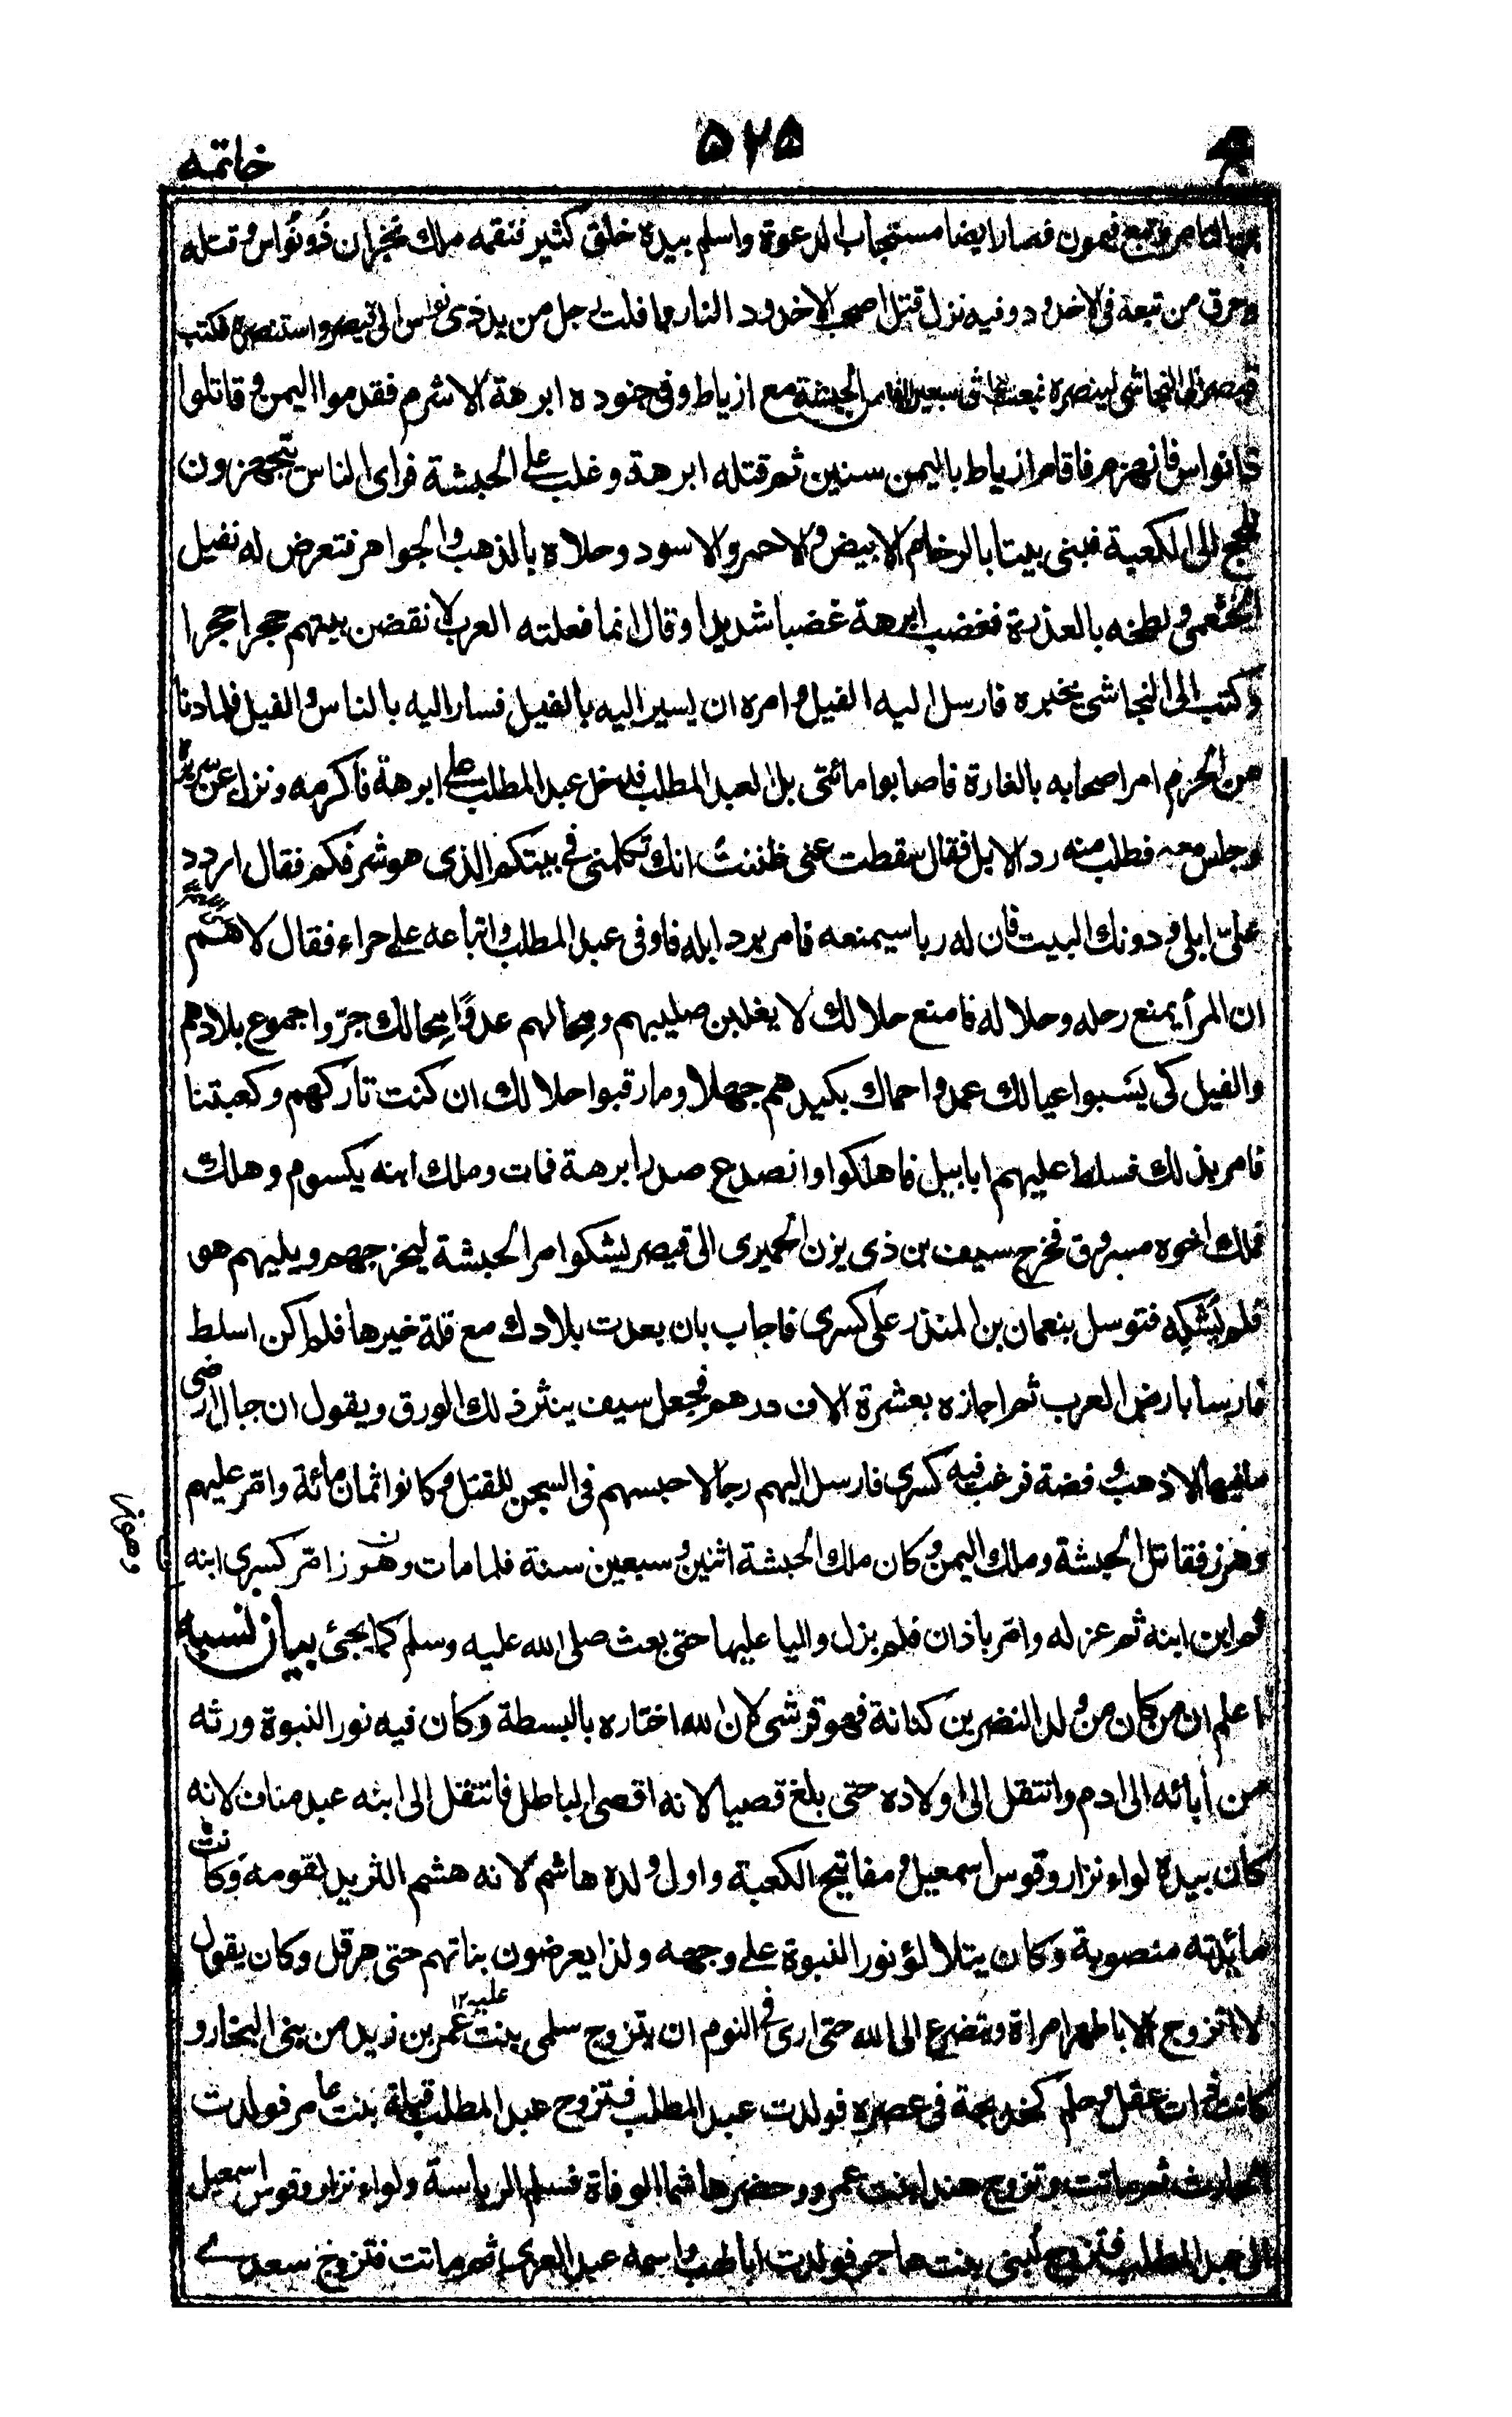 خاتمه ۵۲۵ ج
من الناصر وتبع فيمون فصار ايضا مستجاب الدعوة واسلم بيده خلق كثير فنقمه ملك نجران ذُو نُواس وقتله
وحرق من تبعه فى الاخدود وفيه نزل قتل اصحب الاخدود النار فافلت رجل من يد ذى نواس الى قيصر واستنصره فكتب
قيصر الى النجاشى لينصره فبعث سبعين الفا من الحبشة مع ازياط وفى جنوده ابرهة الاشرم فقدموا اليمن وقاتلوا
ذا نواس فانهزم فاقام ازياط باليمن سنين ثم قتله ابرهة وغلب على الحبشة فراى الناس يتجهزون
للحج الى الكعبة فبنى بيتا بالرخام الابيض والاحمر والاسود وحلاه بالذهب والجواهر فتعرض له نفيل
الخثعمى ولطخه بالعذرة فغضب ابرهة غضبا شديدا وقال انما فعلته العرب لانقضن بيتهم حجرا حجرا
وكتب الى النجاشى يخبره فارسل اليه الفيل وامره ان يسير اليه بالفيل فسار اليه بالناس والفيل فلما دنا
من الحرم امر اصحابه بالغارة فاصابوا مائتى بل لعبد المطلب فدخل عبد المطلب على ابرهة فاكرمه ونزل عن سريره
وجلس معه فطلب منه رد الابل فقال سقطت عنى ظننت انك تكلمنى فى بيتكم الذى هو شرفكم فقال اردد
علىّ ابلى ودونك البيت فان له ربا سيمنعه فامر برد ابله فاوفى عبد المطلب واتباعه على حراء فقال لاهم
ان المرأ يمنع رحله وحلاله فامنع حلالك لا يغلبن صليبهم ومِحالهم عدوًا مِحالك جرّوا جموع بلادهم
والفيل كى يَسْبوا عيالك عمدوا حماك بكيدهم جهلا وما رقبوا حلالك ان كنت تاركهم وكعبتنا
فامر بذلك فسلط عليهم ابابيل فاهلكوا وانصدع صدر ابرهة فمات وملك ابنه يكسوم وهلك
فملك اخوه مسروق فخرج سيف بن ذى يزن الحميرى الى قيصر ليشكوا مر الحبشة ليخرجهم ويليهم هو
فلم يُشْكِه فتوسل بنعمان بن المنذر على كسرى فاجاب بان بعدت بلادك مع قلة خيرها فلم اكن اسلط
فارسا بارض العرب ثم اجازه بعشرة الاف درهم فجعل سيف ينثر ذلك الورق ويقول ان جبال ارضى
مافيها الا ذهب وفضة فرغب فيه كسرى فارسل اليهم رجالا حبسهم فى السجن للقتل وكانوا ثمان مائة وامّر عليهم
وهرز فقاتل الحبشة وملك اليمن وكان ملك الحبشة اثنين وسبعين سنة فلما مات وهرز امّر كسرى ابنه
ثم ابن ابنه ثم عزله وامّر باذان فلم يزل واليا عليها حتى بعث صلى الله عليه وسلم كما يجئ بيان نسبه
اعلم ان من كان من ولد النضر بن كنانة فهو قرشى لان الله اختاره بالبسطة وكان فيه نور النبوة ورثه
من أبائه الى ادم وانتقل الى اولاده حتى بلغ قصيا لانه اقصى الباطل فانتقل الى ابنه عبد مناف لانه
كان بيده لواء نزار وقوس اسمعيل ومفاتيح الكعبة واول ولده هاشم لانه هشم الثريد لقومه وكانت
مائدته منصوبة وكان يتلالؤ نور النبوة على وجهه ولذا يعرضون بناتهم حتى هرقل وكان يقول
لا اتزوج الا باطهر امراة ويتضرع الى الله حتى ارى فى النوم ان يتزوج سلمى بنت عمر بن زيد من بنى النجار و
كانت ذات عقل وحلم كخديجة فى عصره فولدت عبد المطلب فتزوج عبد المطلب قيلة بنت عامر فولدت
الحارث ثم ماتت وتزوج هندا بنت عمرو وحضر هاشما الوفاة فسلم الرياسة ولواء نزار وقوس اسمعيل
الى عبد المطلب فتزوج لُبنى بنت هاجر فولدت ابا لهب واسمه عبد العزى ثم ماتت فتزوج سعدى